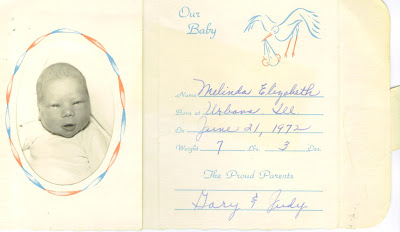 Our
Baby
Name Melinda Elizabeth
Born at Urbana, Ill.
On June 21, 1972
Weight 7 Lbs. 3 Ozs.
The Proud Parents
Gary & Judy